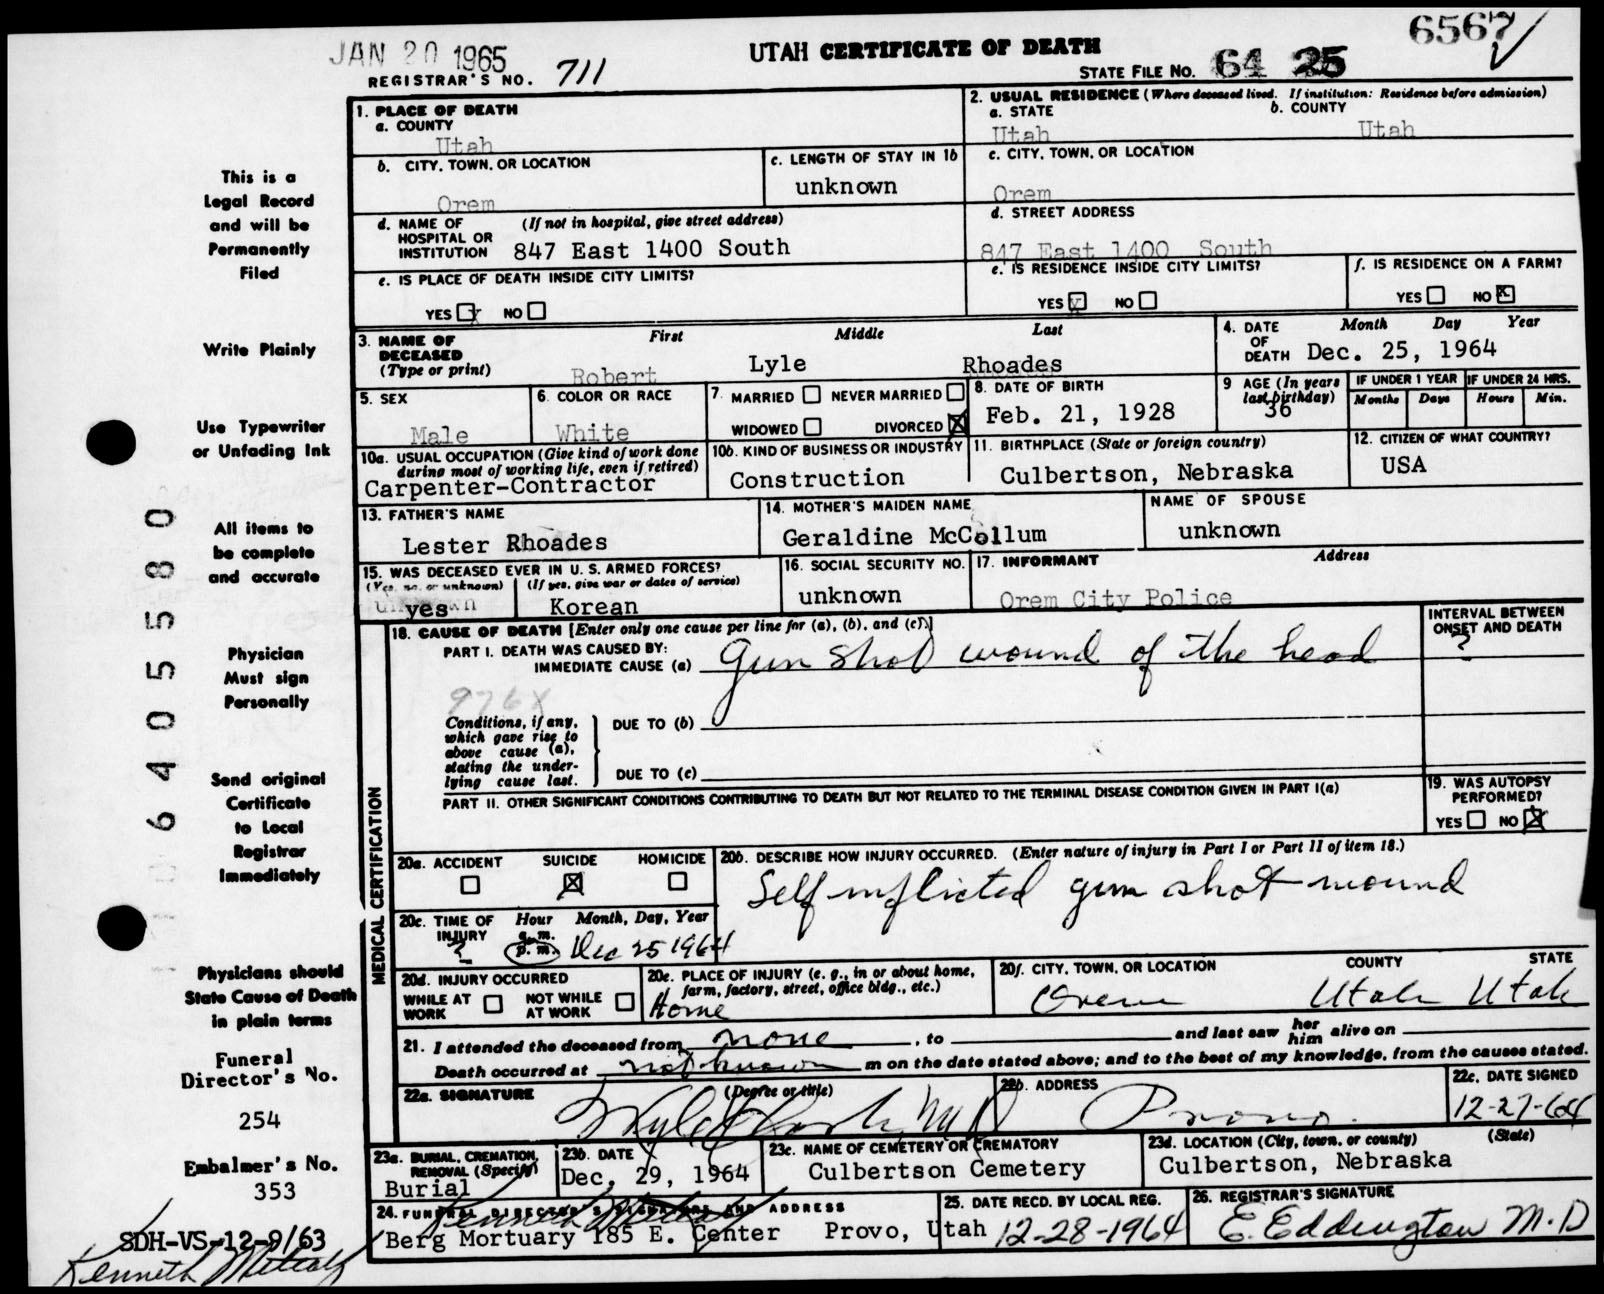 JAN 20 1965
UTAH CERTIFICATE OF DEATH
6567
REGISTRAR'S NO. 711
STATE FILE NO. 64 25
This is a
Legal Record
and will be
Permanently
Filed
Write Plainly
Use Typewriter
or Unfading Ink
All items to
be complete
and accurate
Physician
Must sign
Personally
Send original
Certificate
to Local
Registrar
Immediately
Physicians should
State Cause of Death
in plain terms
Funeral
Director's No.
254
Embalmer's No.
353
SDH-VS-12-9/63
Kenneth Metcalf
64055580
1. PLACE OF DEATH
a. COUNTY
Utah
2. USUAL RESIDENCE (Where deceased lived. If institution: Residence before admission)
a. STATE
Utah
b. COUNTY
Utah
b. CITY, TOWN, OR LOCATION
Orem
c. LENGTH OF STAY IN 1b
unknown
c. CITY, TOWN, OR LOCATION
Orem
d. NAME OF HOSPITAL OR INSTITUTION (If not in hospital, give street address)
847 East 1400 South
d. STREET ADDRESS
847 East 1400 South
e. IS PLACE OF DEATH INSIDE CITY LIMITS?
YES X NO
e. IS RESIDENCE INSIDE CITY LIMITS?
YES X NO
f. IS RESIDENCE ON A FARM?
YES NO X
3. NAME OF DECEASED (Type or print)
First Middle Last
Robert Lyle Rhoades
4. DATE OF DEATH Month Day Year
Dec. 25, 1964
5. SEX
Male
6. COLOR OR RACE
White
7. MARRIED NEVER MARRIED
WIDOWED DIVORCED X
8. DATE OF BIRTH
Feb. 21, 1928
9 AGE (In years last birthday)
36
IF UNDER 1 YEAR
Months Days
IF UNDER 24 HRS.
Hours Min.
10a. USUAL OCCUPATION (Give kind of work done during most of working life, even if retired)
Carpenter-Contractor
10b. KIND OF BUSINESS OR INDUSTRY
Construction
11. BIRTHPLACE (State or foreign country)
Culbertson, Nebraska
12. CITIZEN OF WHAT COUNTRY?
USA
13. FATHER'S NAME
Lester Rhoades
14. MOTHER'S MAIDEN NAME
Geraldine McCollum
NAME OF SPOUSE
unknown
15. WAS DECEASED EVER IN U. S. ARMED FORCES?
(Yes, no, or unknown) (If yes, give war or dates of service)
yes Korean
16. SOCIAL SECURITY NO.
unknown
17. INFORMANT Address
Orem City Police
MEDICAL CERTIFICATION
18. CAUSE OF DEATH [Enter only one cause per line for (a), (b), and (c).]
INTERVAL BETWEEN ONSET AND DEATH
?
PART I. DEATH WAS CAUSED BY:
IMMEDIATE CAUSE (a) Gun shot wound of the head
976X
Conditions, if any, which gave rise to above cause (a), stating the underlying cause last.
DUE TO (b)
DUE TO (c)
PART II. OTHER SIGNIFICANT CONDITIONS CONTRIBUTING TO DEATH BUT NOT RELATED TO THE TERMINAL DISEASE CONDITION GIVEN IN PART I(a)
19. WAS AUTOPSY PERFORMED?
YES NO X
20a. ACCIDENT SUICIDE HOMICIDE
X
20b. DESCRIBE HOW INJURY OCCURRED. (Enter nature of injury in Part I or Part II of item 18.)
Self inflicted gun shot wound
20c. TIME OF INJURY Hour Month, Day, Year
? a. m. p. m. Dec 25 1964
20d. INJURY OCCURRED
WHILE AT WORK NOT WHILE AT WORK
20e. PLACE OF INJURY (e. g., in or about home, farm, factory, street, office bldg., etc.)
Home
20f. CITY, TOWN, OR LOCATION COUNTY STATE
Orem Utah Utah
21. I attended the deceased from none , to and last saw her him alive on
Death occurred at not known m on the date stated above; and to the best of my knowledge, from the causes stated.
22a. SIGNATURE (Degree or title)
M D
22b. ADDRESS
Provo.
22c. DATE SIGNED
12-27-64
23a. BURIAL, CREMATION, REMOVAL (Specify)
Burial
23b. DATE
Dec, 29, 1964
23c. NAME OF CEMETERY OR CREMATORY
Culbertson Cemetery
23d. LOCATION (City, town, or county) (State)
Culbertson, Nebraska
24. FUNERAL DIRECTOR'S SIGNATURE AND ADDRESS
Kenneth Metcalf
Berg Mortuary 185 E. Center Provo, Utah
25. DATE RECD. BY LOCAL REG.
12-28-1964
26. REGISTRAR'S SIGNATURE
E. Eddington M.D